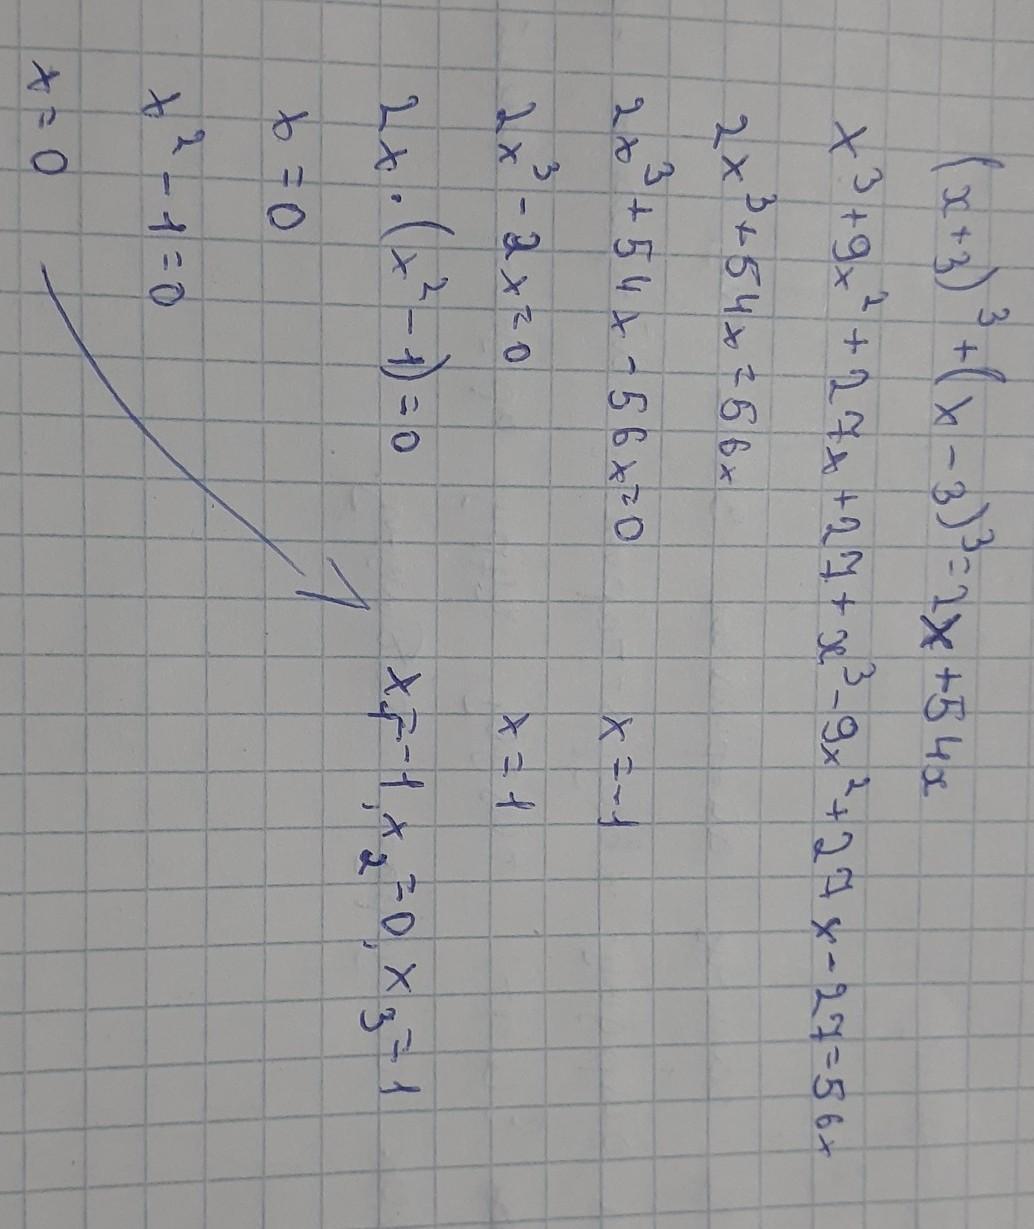 (x+3)³+(x-3)³=2x+54x
x³+9x²+27x+27+x³-9x²+27x-27=56x
2x³+54x=56x
2x³+54x-56x=0
2x³-2x=0
2x·(x²-1)=0
x=0
x²-1=0
x=0
x=-1
x=1
x₁=-1, x₂=0, x₃=1